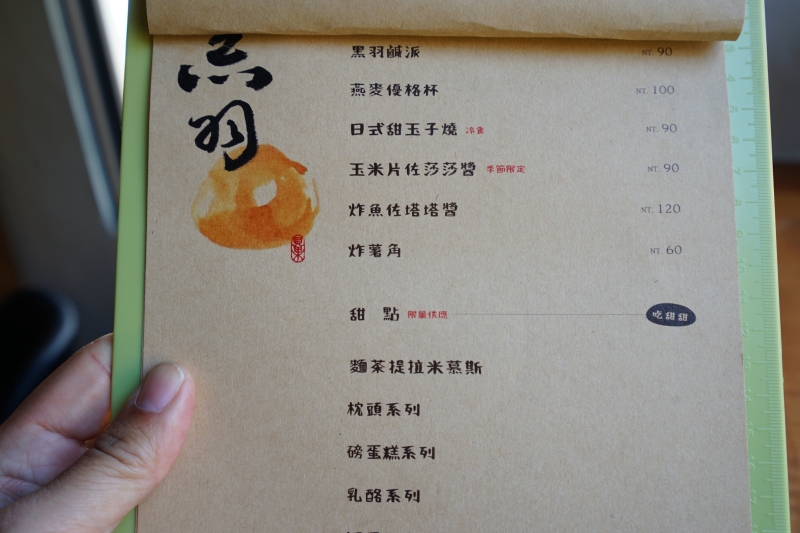 黑羽
黑羽鹹派 NT. 90
燕麥優格杯 NT. 100
日式甜玉子燒 冷食 NT. 90
玉米片佐莎莎醬 季節限定 NT. 90
炸魚佐塔塔醬 NT. 120
炸薯角 NT. 60
甜點 限量供應 吃甜甜
麵茶提拉米慕斯
枕頭系列
磅蛋糕系列
乳酪系列